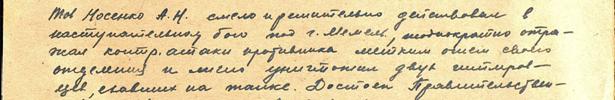 Тов Носенко А.Н. смело и решительно действовал в
наступательном бою под г. Мемель, неоднократно отра-
жал контр.атаки противника метким огнем своего
отделения и лично уничтожил двух гитлеров-
цев, ехавших на танке. Достоин Правительствен-